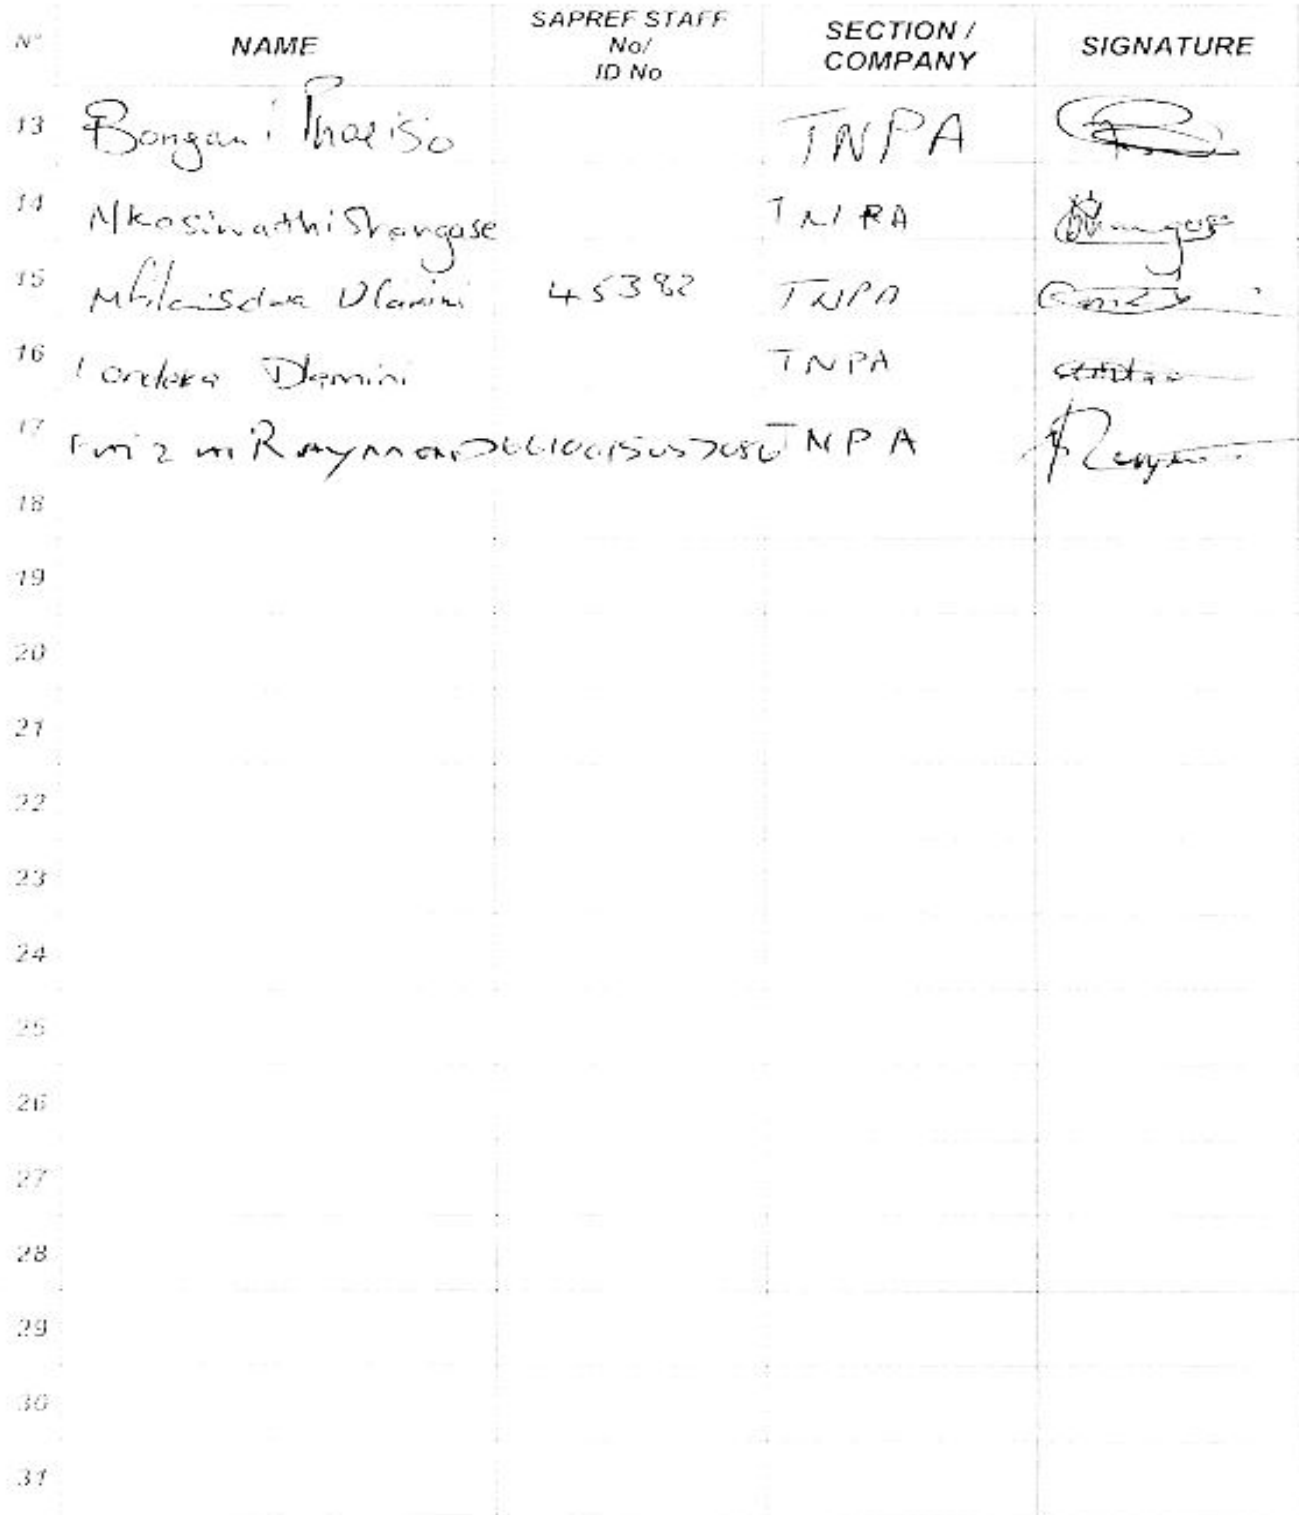 N° NAME SAPREF STAFF No/ ID No SECTION / COMPANY SIGNATURE
13 Bongani TNPA
14 Nkosinathi Shangase TNPA
15 Dlamini 45382 TNPA
16 Londeka Dlamini TNPA
17 TNPA
18
19
20
21
22
23
24
25
26
27
28
29
30
31